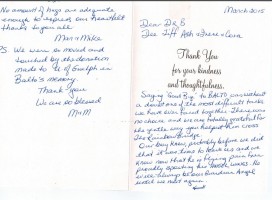 No amount of hugs are adequate
enough to expand our heartfelt
thanks to you all.
Mary & Mike
PS. We were so moved and
touched by the donation
made to U of Guelph in
Balto's memory.
Thank you.
We are so blessed
M & M
March 2015
Dear Dr S
Dee Tiff Ash
Thank You
for your kindness
and thoughtfulness.
Saying "Good Bye" to BALTO was without
a doubt one of the most difficult tasks
we have ever faced together. There was
no choice and we are totally grateful for
the gentle way you helped him cross
The Rainbow Bridge.
Our boy knew probably before we did
that it was time to leave us and we
know now that he is playing pain free
proudly
will always be our Guardian Angel
until we meet again.